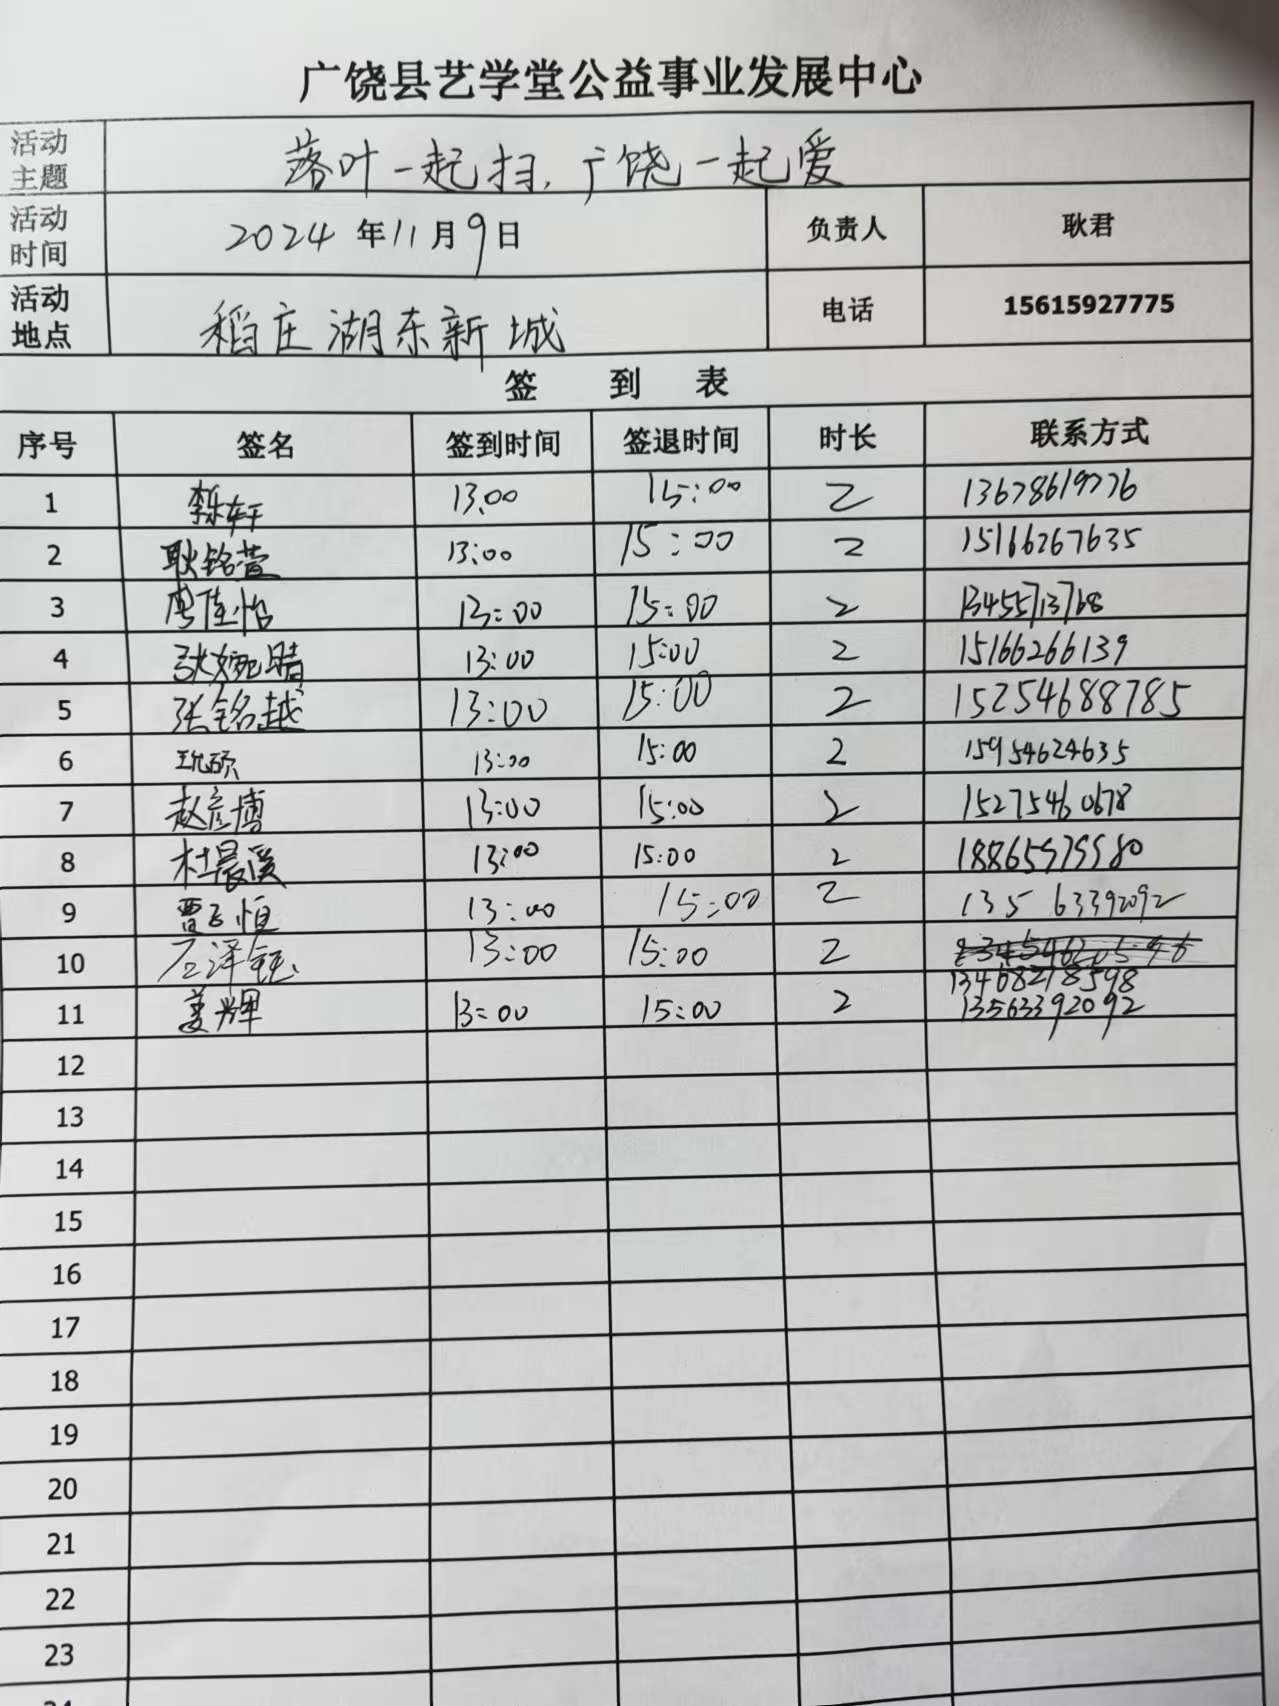 广饶县艺学堂公益事业发展中心
活动主题 落叶一起扫,广饶一起爱
活动时间 2024年11月9日 负责人 耿君
活动地点 稻庄湖东新城 电话 15615927775
签 到 表
序号 签名 签到时间 签退时间 时长 联系方式
1 李乐轩 13:00 15:00 2 13678619776
2 耿铭萱 13:00 15:00 2 15166267635
3 唐佳怡 13:00 15:00 2 13455713768
4 张婉晴 13:00 15:00 2 15166266139
5 张铭越 13:00 15:00 2 15254688785
6 13:00 15:00 2 15954624635
7 赵彦博 13:00 15:00 2 15275460678
8 杜晨溪 13:00 15:00 2 18865979980
9 13:00 15:00 2 135 63392092
10 石泽钰 13:00 15:00 2
13468278598
11 姜辉 13:00 15:00 2 13563392092
12
13
14
15
16
17
18
19
20
21
22
23
24